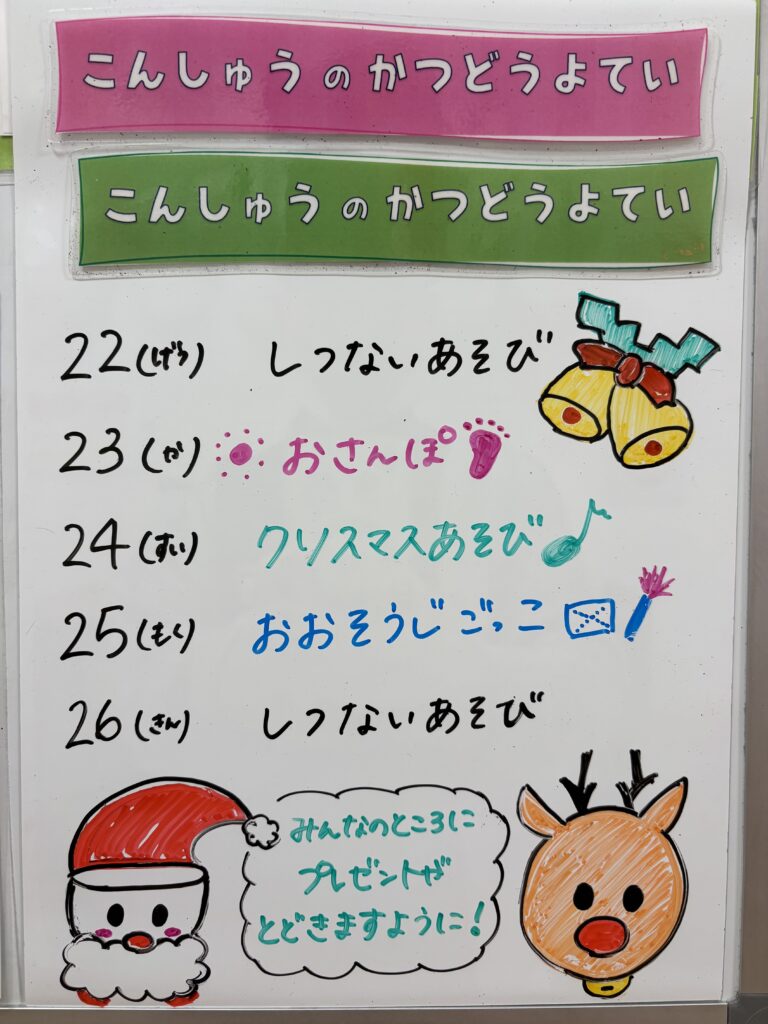 こんしゅうのかつどうよてい
こんしゅうのかつどうよてい
22(げつ) しつないあそび
23(か) おさんぽ
24(すい) クリスマスあそび
25(もく) おおそうじごっこ
26(きん) しつないあそび
みんなのところに
プレゼントが
とどきますように!